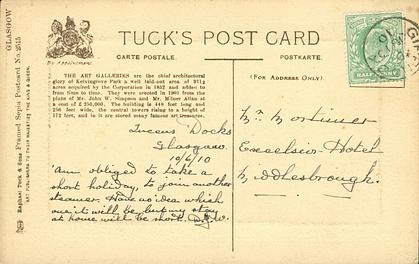 TUCK'S POST CARD
CARTE POSTALE.
POSTKARTE.
By Appointment.
(FOR ADDRESS ONLY).
THE ART GALLERIES are the chief architectural
glory of Kelvingrove Park a well laid-out area of 91½
acres acquired by the Corporation in 1852 and added to
from time to time. They were erected in 1901 from the
plans of Mr. John W. Simpson and Mr. Milner Allan at
a cost of £250,000. The building is 448 feet long and
256 feet wide, the central towers rising to a height of
172 feet, and in it are stored many famous art treasures.
Queens' Docks
Glasgow.
10/6/10
'Am obliged to take a
short holiday, to join another
steamer. Have no idea which
one it will be, but my stay
at home will be short.
Mr. Mortimer
Excelsior Hotel
Middlesbrough.
HALFPENNY
GLASGOW
Raphael Tuck & Sons Framed Sepia Postcard No. 2615
ART PUBLISHERS TO THEIR MAJESTIES THE KING & QUEEN.